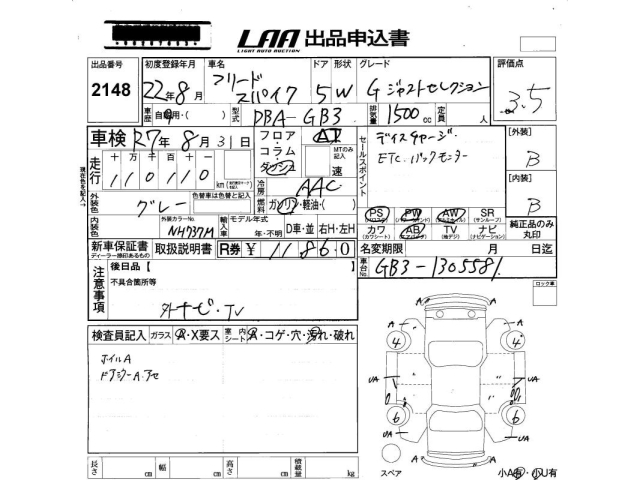 LAA 出品申込書
LIGHT AUTO AUCTION
出品番号
2148
初度登録年月
22年8月
車名
フリード
スパイク
ドア 形状
5W
グレード
G ジャストセレクション
評価点
3.5
車歴 自家用・( )
型式
DBA-GB3
排気量 1500cc
定員 人
車検 R7年8月31日
走行
十万 万 千 百 十 一
110110
km
現在色を記入
フロア・
コラム・
ダッシュ
AT
MTのみ記入
速
冷房
AAC
外装色
グレー
色替車は色替と記入
燃料 ガソリン・軽油・( )
内装色
外装カラーNo.
NH737M
輸入車
モデル年式
年・不明
D車・並 右H・左H
セールスポイント
ディスチャージ
ETC. バックモニター
PS PW AW SR
(サンルーフ)
カワ AB TV ナビ
(カワシート) (エアバッグ) (地デジ) (ナビゲーション)
純正品のみ
丸印
[外装]
B
[内装]
B
新車保証書 取扱説明書 R券 ¥11860
ディーラー捺印あるもの
名変期限 月 日迄
注意事項
後日品【
不具合箇所等
外ナビ・TV
車台No.
GB3-1305581
ロック車
検査員記入 ガラス A・X要ス 室内シート A・コゲ・穴・汚れ・破れ
ホイルA
ドアミラーA.アセ
A A
4 4
UA UA
A A
6 6
UA UA
A A
長さ cm 幅 cm 高さ cm 積載量 kg
スペア
小A有・小U有